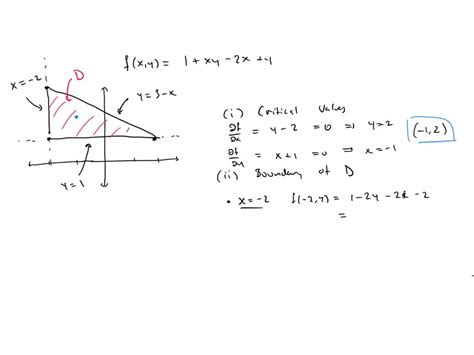 f(x,y) = 1 + xy - 2x + y
x = -2
D
y = 3-x
y = 1
(i) Critical Values
∂f/∂x = y - 2 = 0 ⇒ y = 2
(-1, 2)
∂f/∂y = x + 1 = 0 ⇒ x = -1
(ii) Boundary of D
• x = -2 f(-2, y) = 1 - 2y - 2
=